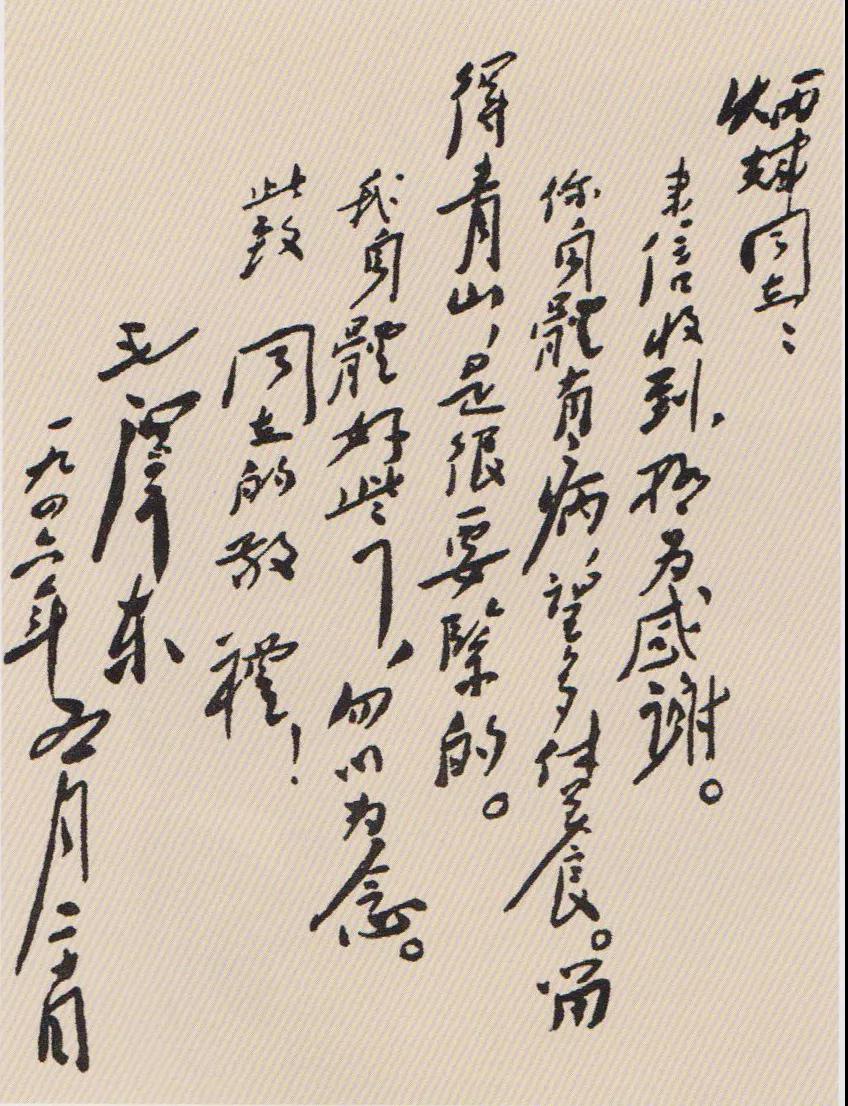 炳輝同志：
来信收到，极为感谢。
你身體有病，望多休養。留
得青山，是很要緊的。
我身體好些了，勿以为念。
此致 同志的敬禮！
毛澤东
一九四六年五月二十日